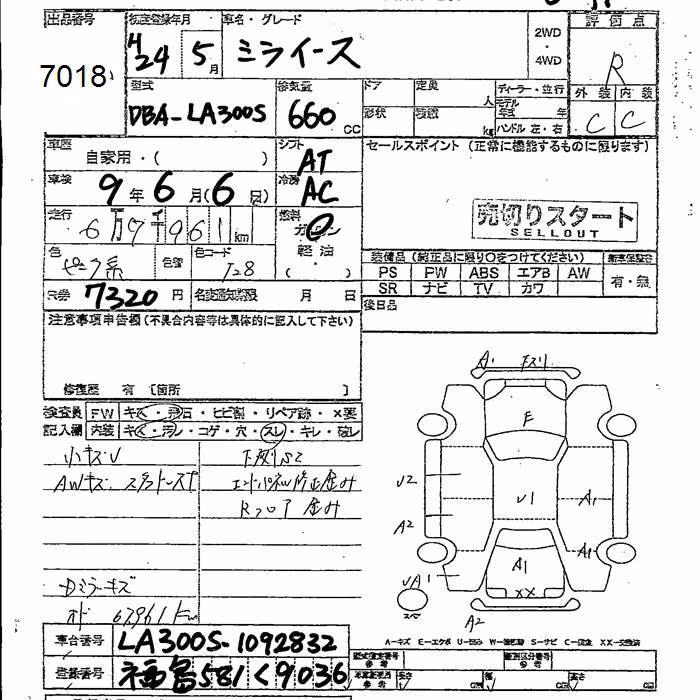 出品番号 初度登録年月 車名・グレード 評価点
7018 H24 5月 ミライース 2WD ・ 4WD R
型式 排気量 ドア 定員 人 ディーラー・並行 外装 内装
DBA-LA300S 660 CC 形状 積載 kg モデル年式 年 ハンドル 左・右 C C
車歴 自家用・( ) シフト AT セールスポイント (正常に機能するものに限ります)
車検 9年6月(6日) 冷房 AC
走行 6万7千961km 燃料 ガソリン ・ 軽油
売切りスタート
SELLOUT
色 ピンク系 色替 色コード T28
装備品 (純正品に限り○をつけてください) 新車保証書
PS PW ABS エアB AW 有・無
SR ナビ TV カワ
R券 7320円 名変通知期限 月 日 後日品
注意事項申告欄 (不具合内容等は具体的に記入して下さい)
修復歴 有 〔箇所 〕
検査員 FW キズ・飛石・ヒビ割・リペア跡・×要
記入欄 内装 キズ・汚レ・コゲ・穴・スレ・キレ・破レ
小キズU 下廻りS2
AWキズ スタッドレス付 エンドパネル修正歪み
Rフロア 歪み
Dミラーキズ
オド 67961km
A1 下スリ
E
U2 U1 A1
A2
A1 A1
UA1 XX
スペア A2
A-キズ E-エクボ U-凹み W-補修跡 S-サビ C-腐食 XX-交換済
車台番号 LA300S-1092832 型式指定番号 参考 類別区分番号 参考
登録番号 福島581く9036 長さ cm 幅 cm 高さ cm